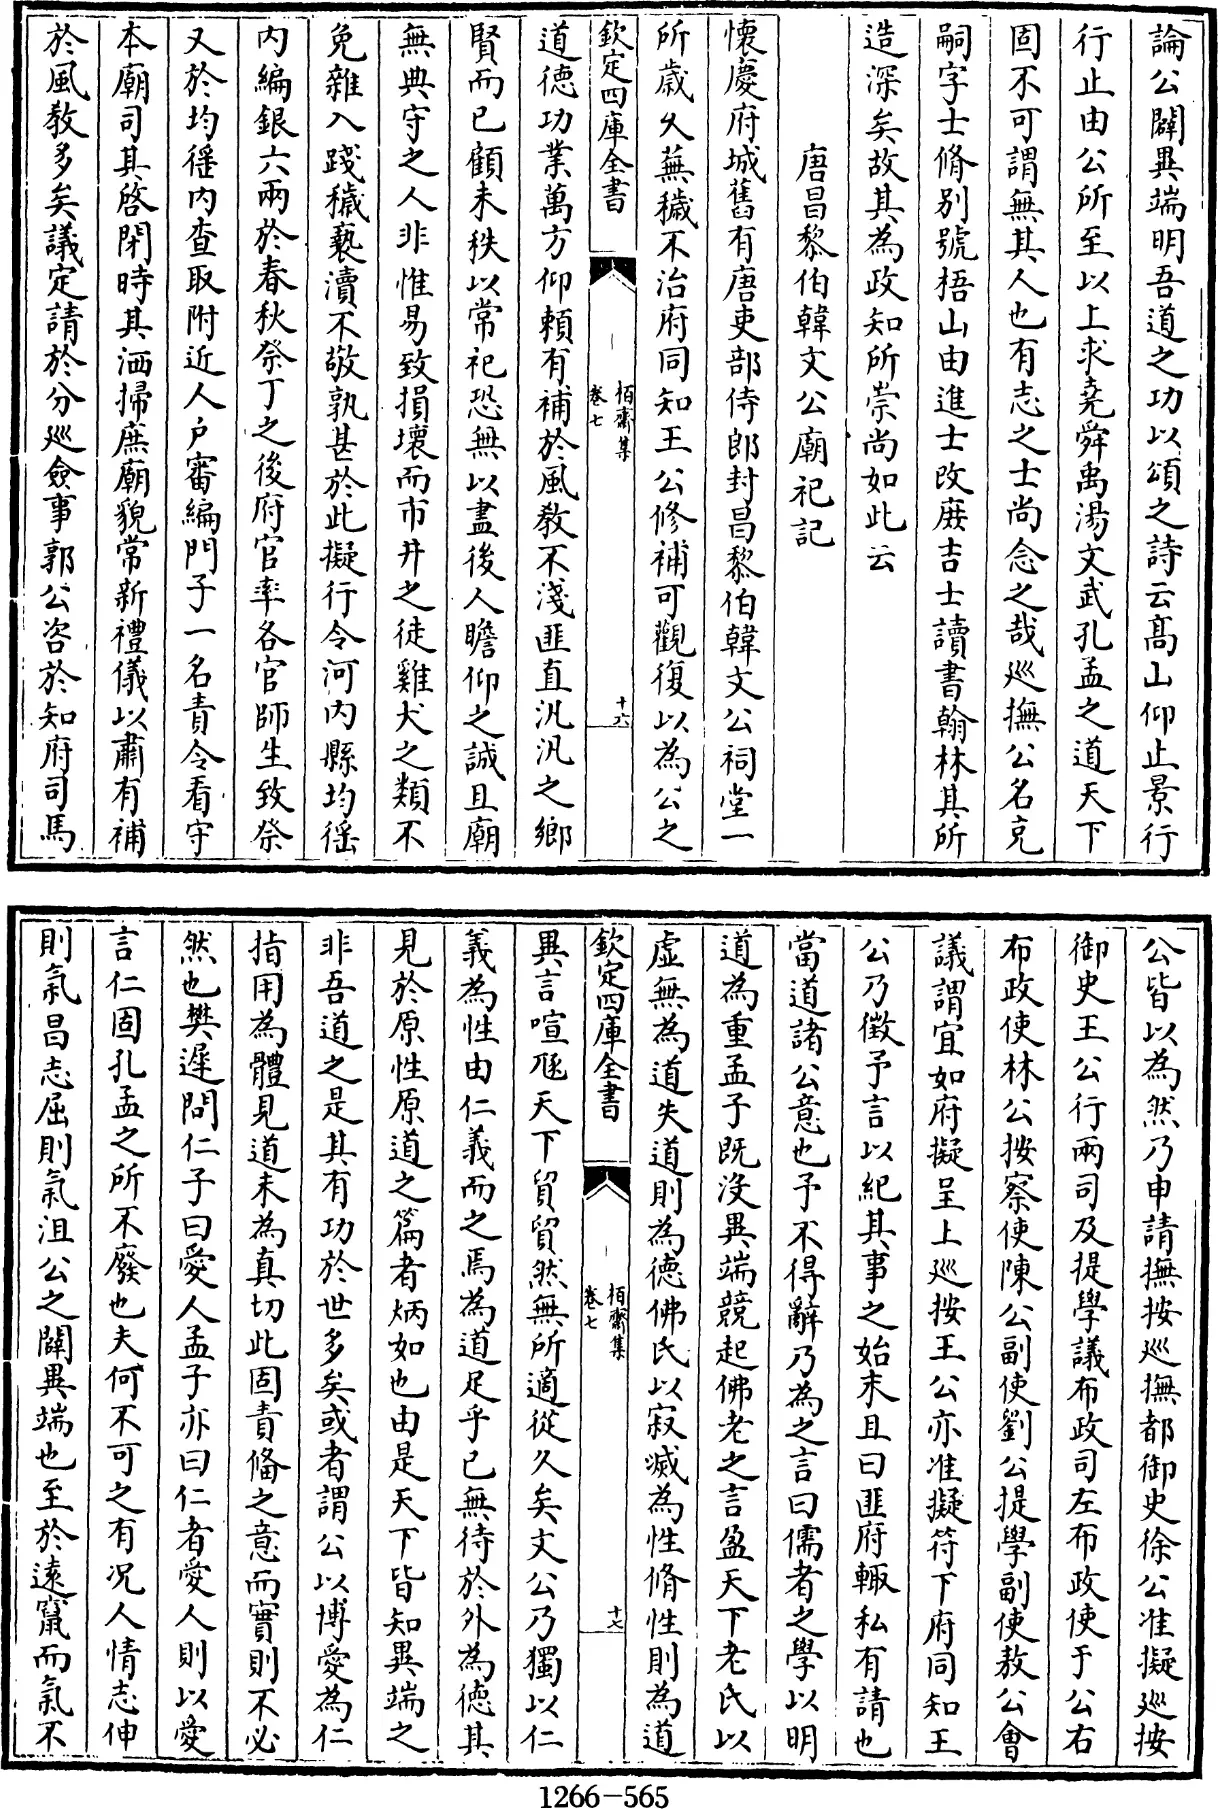 論公闢異端明吾道之功以頌之詩云高山仰止景行
行止由公所至以上求堯舜禹湯文武孔孟之道天下
固不可謂無其人也有志之士尚念之哉巡撫公名克
嗣字士脩别號梧山由進士改庻吉士讀書翰林其所
造深矣故其為政知所崇尚如此云
唐昌黎伯韓文公廟祀記
懷慶府城舊有唐吏部侍郎封昌黎伯韓文公祠堂一
所歲乆蕪穢不治府同知王公修補可觀復以為公之
欽定四庫全書
栢齋集
卷七
十六
道德功業萬方仰頼有補於風敎不淺匪直汎汎之鄉
賢而已顧未秩以常祀恐無以盡後人瞻仰之誠且廟
無典守之人非惟易致損壞而市井之徒雞犬之類不
免雜入踐穢褻瀆不敬孰甚於此擬行令河内縣均徭
内編銀六兩於春秋祭丁之後府官率各官師生致祭
又於均徭内查取附近人户審編門子一名責令看守
本廟司其啓閉時其洒掃庶廟貌常新禮儀以肅有補
於風敎多矣議定請於分巡僉事郭公咨於知府司馬
公皆以為然乃申請撫按巡撫都御史徐公准擬巡按
御史王公行兩司及提學議布政司左布政使于公右
布政使林公按察使陳公副使劉公提學副使敖公會
議謂宜如府擬呈上巡按王公亦准擬符下府同知王
公乃徴予言以紀其事之始末且曰匪府輙私有請也
當道諸公意也予不得辭乃為之言曰儒者之學以明
道為重孟子既没異端競起佛老之言盈天下老氏以
虚無為道失道則為德佛氏以寂滅為性脩性則為道
欽定四庫全書
栢齋集
卷七
十七
異言喧豗天下貿貿然無所適從久矣文公乃獨以仁
義為性由仁義而之焉為道足乎已無待於外為德其
見於原性原道之篇者炳如也由是天下皆知異端之
非吾道之是其有功於世多矣或者謂公以博愛為仁
指用為體見道未為真切此固責備之意而實則不必
然也樊遲問仁子曰愛人孟子亦曰仁者愛人則以愛
言仁固孔孟之所不廢也夫何不可之有况人情志伸
則氣昌志屈則氣沮公之闢異端也至於遠竄而氣不
1266-565